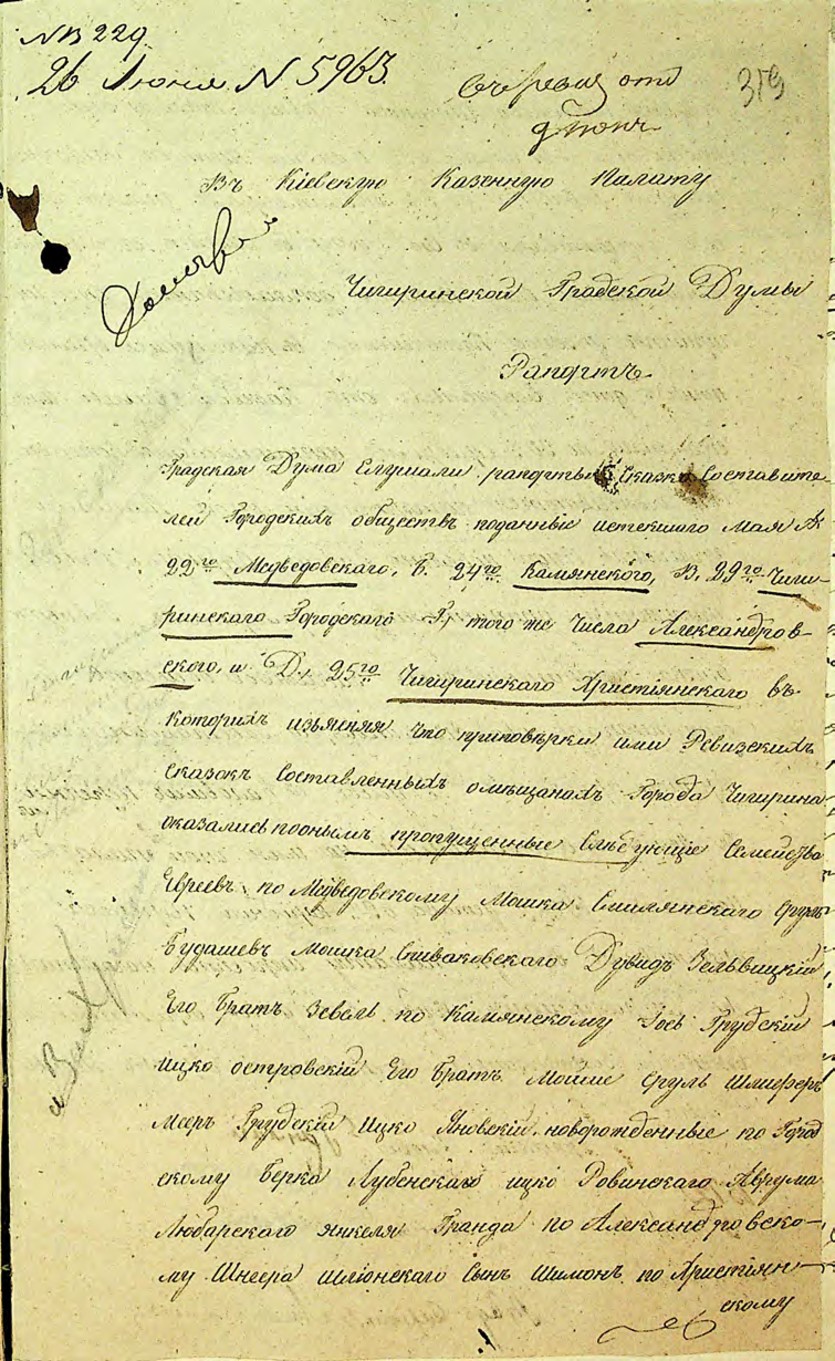 № 229
26 Июня N 5963.
319
Въ Кіевскую Казенную Палату
Чигиринской Градской Думы
Рапортъ
Градская Дума Слушали рапорты Сказки Составите-
лей Городскихъ обществъ поданные истекшаго Мая А
22го Медведовскаго, Б. 24го Камянского, В. 29го Чиги-
ринскаго Городскаго Г, того же Числа Александров-
ского, и Д., 25го Чигиринскаго Христіянскаго въ
которихъ изьясняя что приповѣрки ими Ревизскихъ
Сказокъ Составленныхъ омѣщанахъ Города Чигирина
оказались поонымъ пропущенные Слѣдующіе Семейства
Евреевъ: по Медведовскому Мошка Смилянскаго Сруль
Будашевъ Мошка Спиваковскаго Дувидъ Зельвицкій
Его братъ Зевель по Камянскому Іось Грубскій
Ицко островскій Его братъ Мойше Сруль Шлиферъ
Мееръ Грубскій Ицко Яновскій, новорожденные по Город
скому Берка Лубенскаго ицко Ровинскаго Аврума
Любарскаго янкеля Гранда по Александровско-
му Шнеера Шліонскаго Сынъ Шимонъ по Христіян-
скому